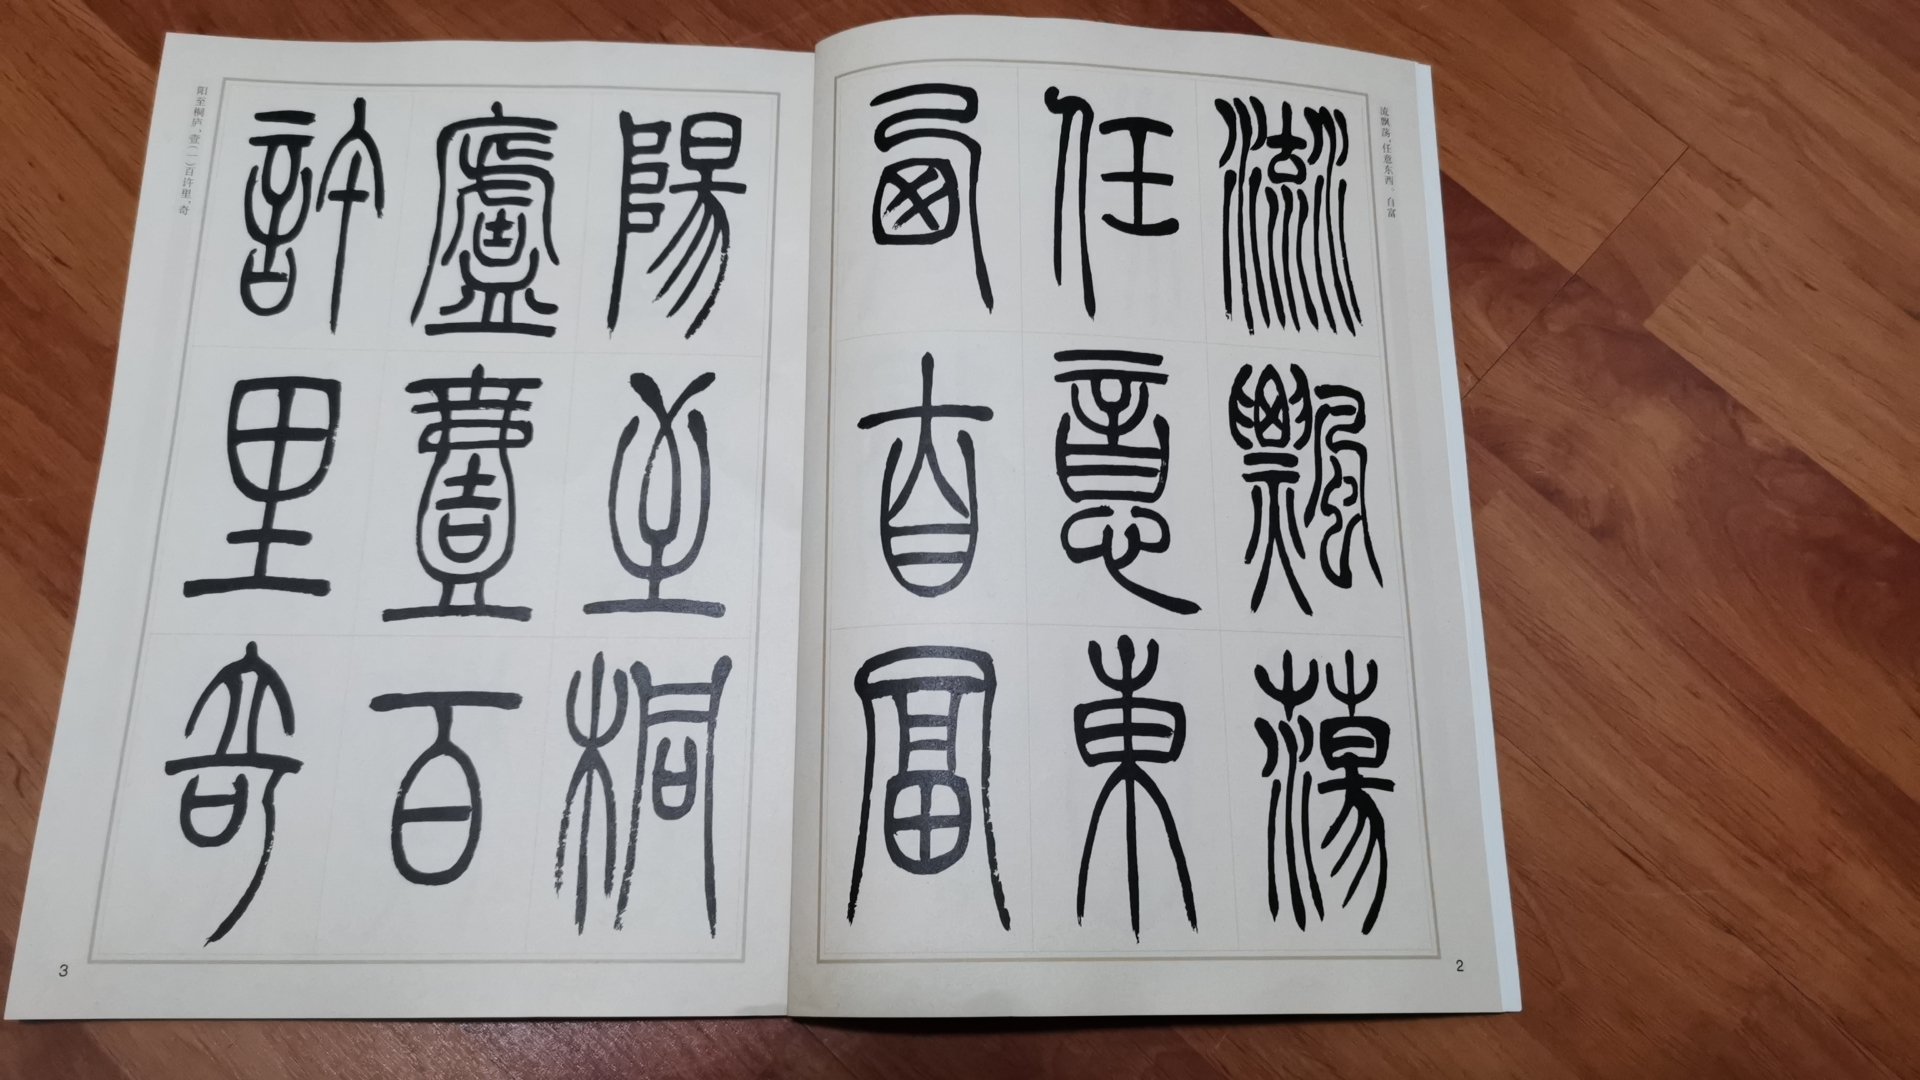 流飘荡，任意东西。自富
流飄蕩
任意東
西自富
2
陽至桐
廬壹百
許里奇
阳至桐庐，壹（一）百许里，奇
3